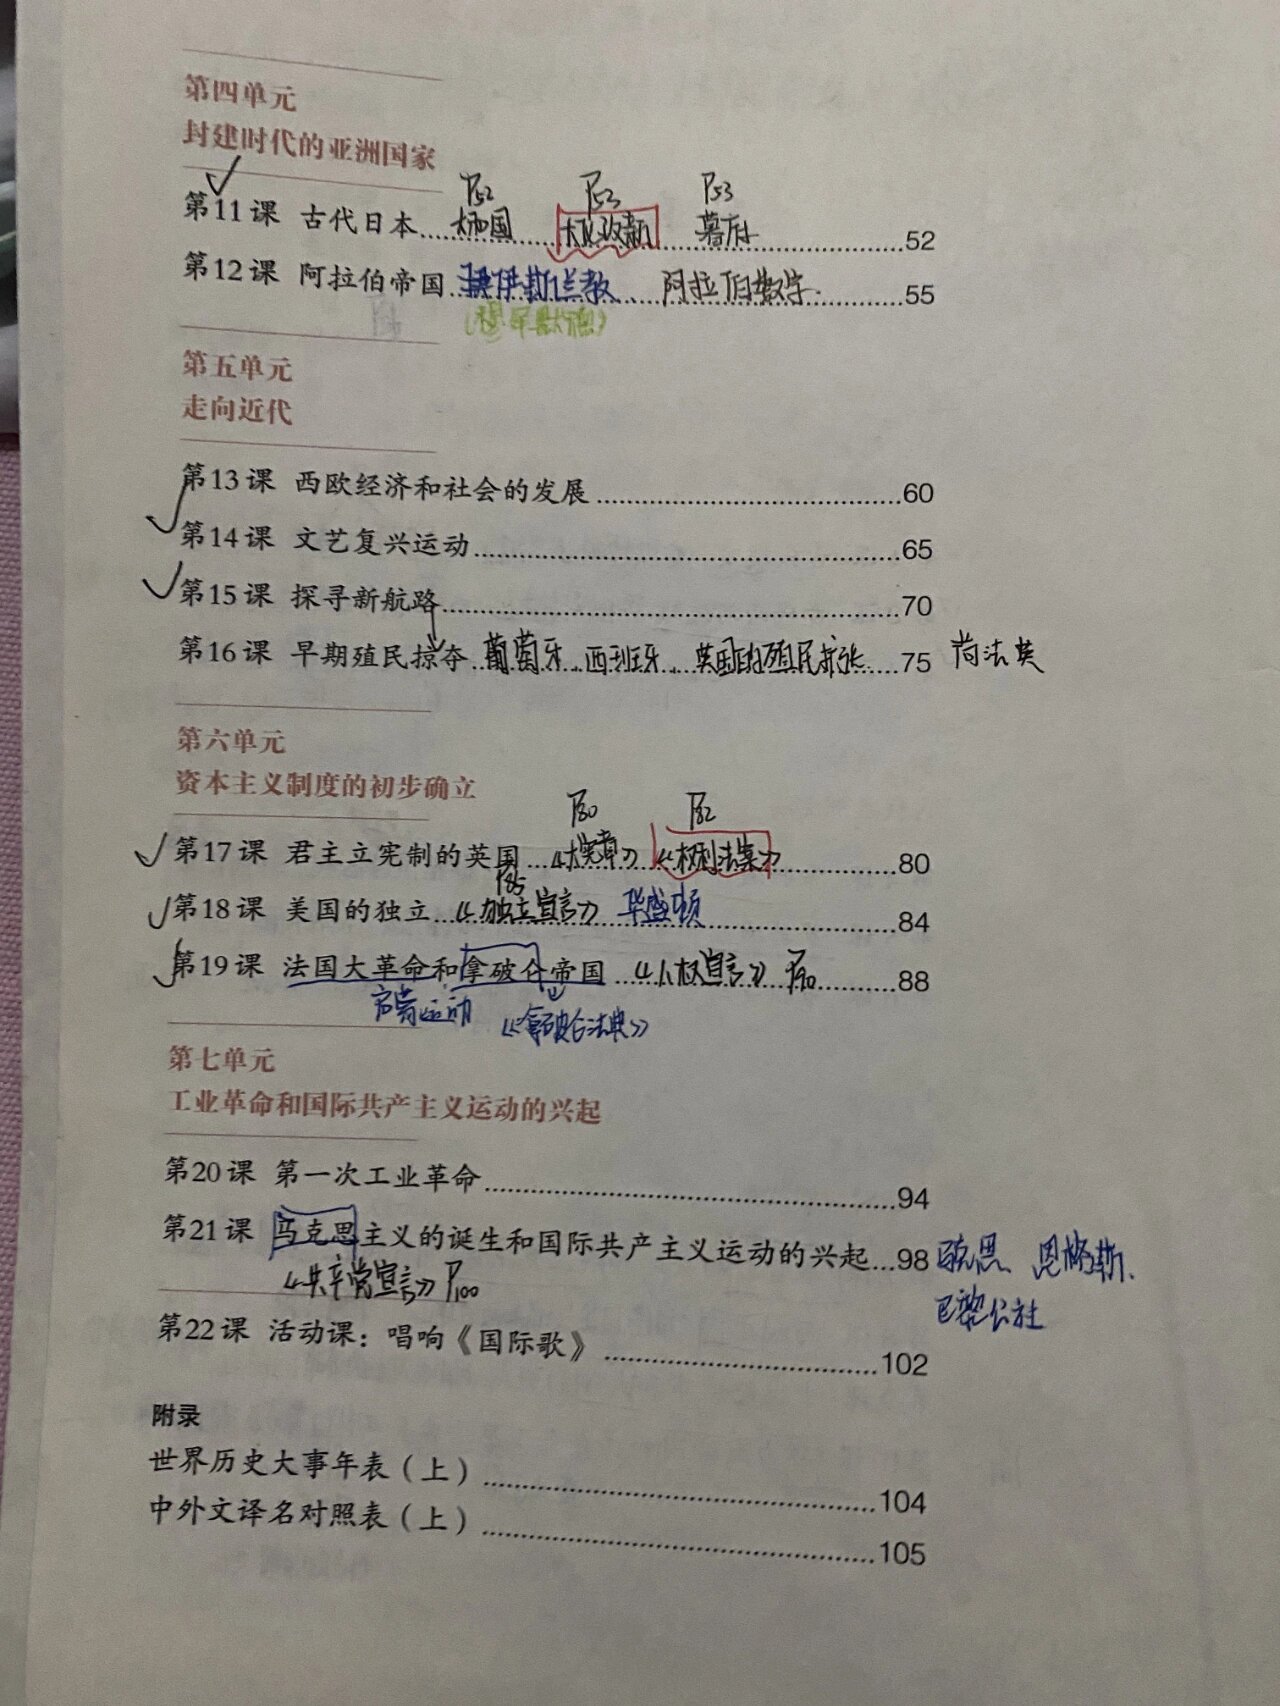 第四单元
封建时代的亚洲国家
P52 P53 P53
第11课 古代日本 大和国 大化改新 幕府 52
第12课 阿拉伯帝国 伊斯兰教 阿拉伯数字 55
(穆罕默德)
第五单元
走向近代
第13课 西欧经济和社会的发展 60
第14课 文艺复兴运动 65
第15课 探寻新航路 70
第16课 早期殖民掠夺 葡萄牙 西班牙 英国的殖民扩张 75 荷法英
第六单元
资本主义制度的初步确立
P80 P82
第17课 君主立宪制的英国 《大宪章》 《权利法案》 80
P85
第18课 美国的独立 《独立宣言》 华盛顿 84
第19课 法国大革命和拿破仑帝国 《人权宣言》 P90 88
启蒙运动 《拿破仑法典》
第七单元
工业革命和国际共产主义运动的兴起
第20课 第一次工业革命 94
第21课 马克思主义的诞生和国际共产主义运动的兴起 98 马克思 恩格斯
《共产党宣言》P100 巴黎公社
第22课 活动课：唱响《国际歌》 102
附录
世界历史大事年表（上） 104
中外文译名对照表（上） 105